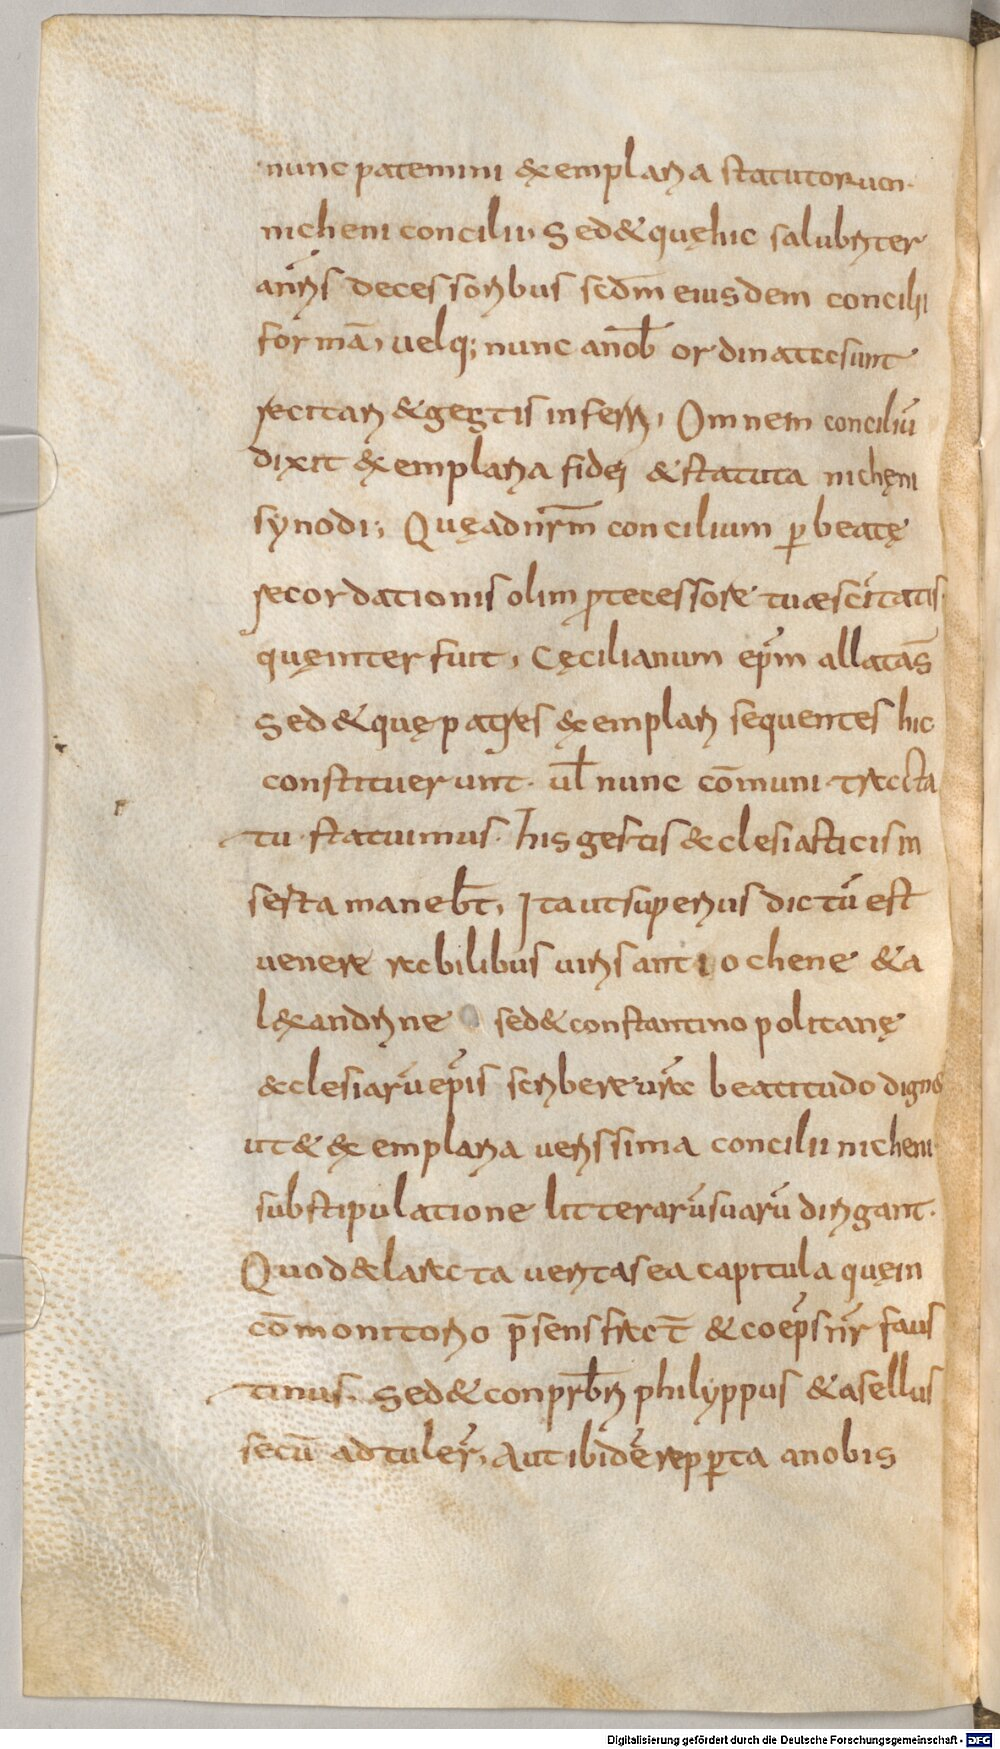 nunc patemini &xemplaria statutorum·
nicheni concilii· Sed&quęhic salubriter
anr̃is decessoribus scd̄m eiusdem concilii
formā, uelq; nunc anob̄ ordinata sunt
recitari &gestis inseri, Omnem conciliū
dixit &xemplaria fidei &statuta nichęni
synodi; Quęadnr̄m concilium ꝑ beatę
recordationis olim p̄tecessore tuæscītatis·
quęinterfuit, Cęcilianum ep̄m allatas̄
Sed&quępatres &xemplari sequentes hic
constituerunt· ul̄ nunc cōmuni tracta
tu statuimus· his gestis &clesiasticis in
serta maneb̄t, Ita ut superius dictū est
venere rabilibus uiris antiochene &a
l&xandrine sed&constantinopolitanę
&clesiarūep̄is scribere ur̄a beatitudo digne
ut& &xemplaria uerissima concilii nicheni·
substipulatione litterarūsuarū dirigant·
Quod&larata ueritas ea capitula quęin
cōmonitorio p̄sens frat̄ &coep̄s nr̄ faus
tinus, sed&conprb̄ri philyppus &asellus
secū adtuler̄, Aut ibidē reꝑpta anobis
Digitalisierung gefördert durch die Deutsche Forschungsgemeinschaft - DFG